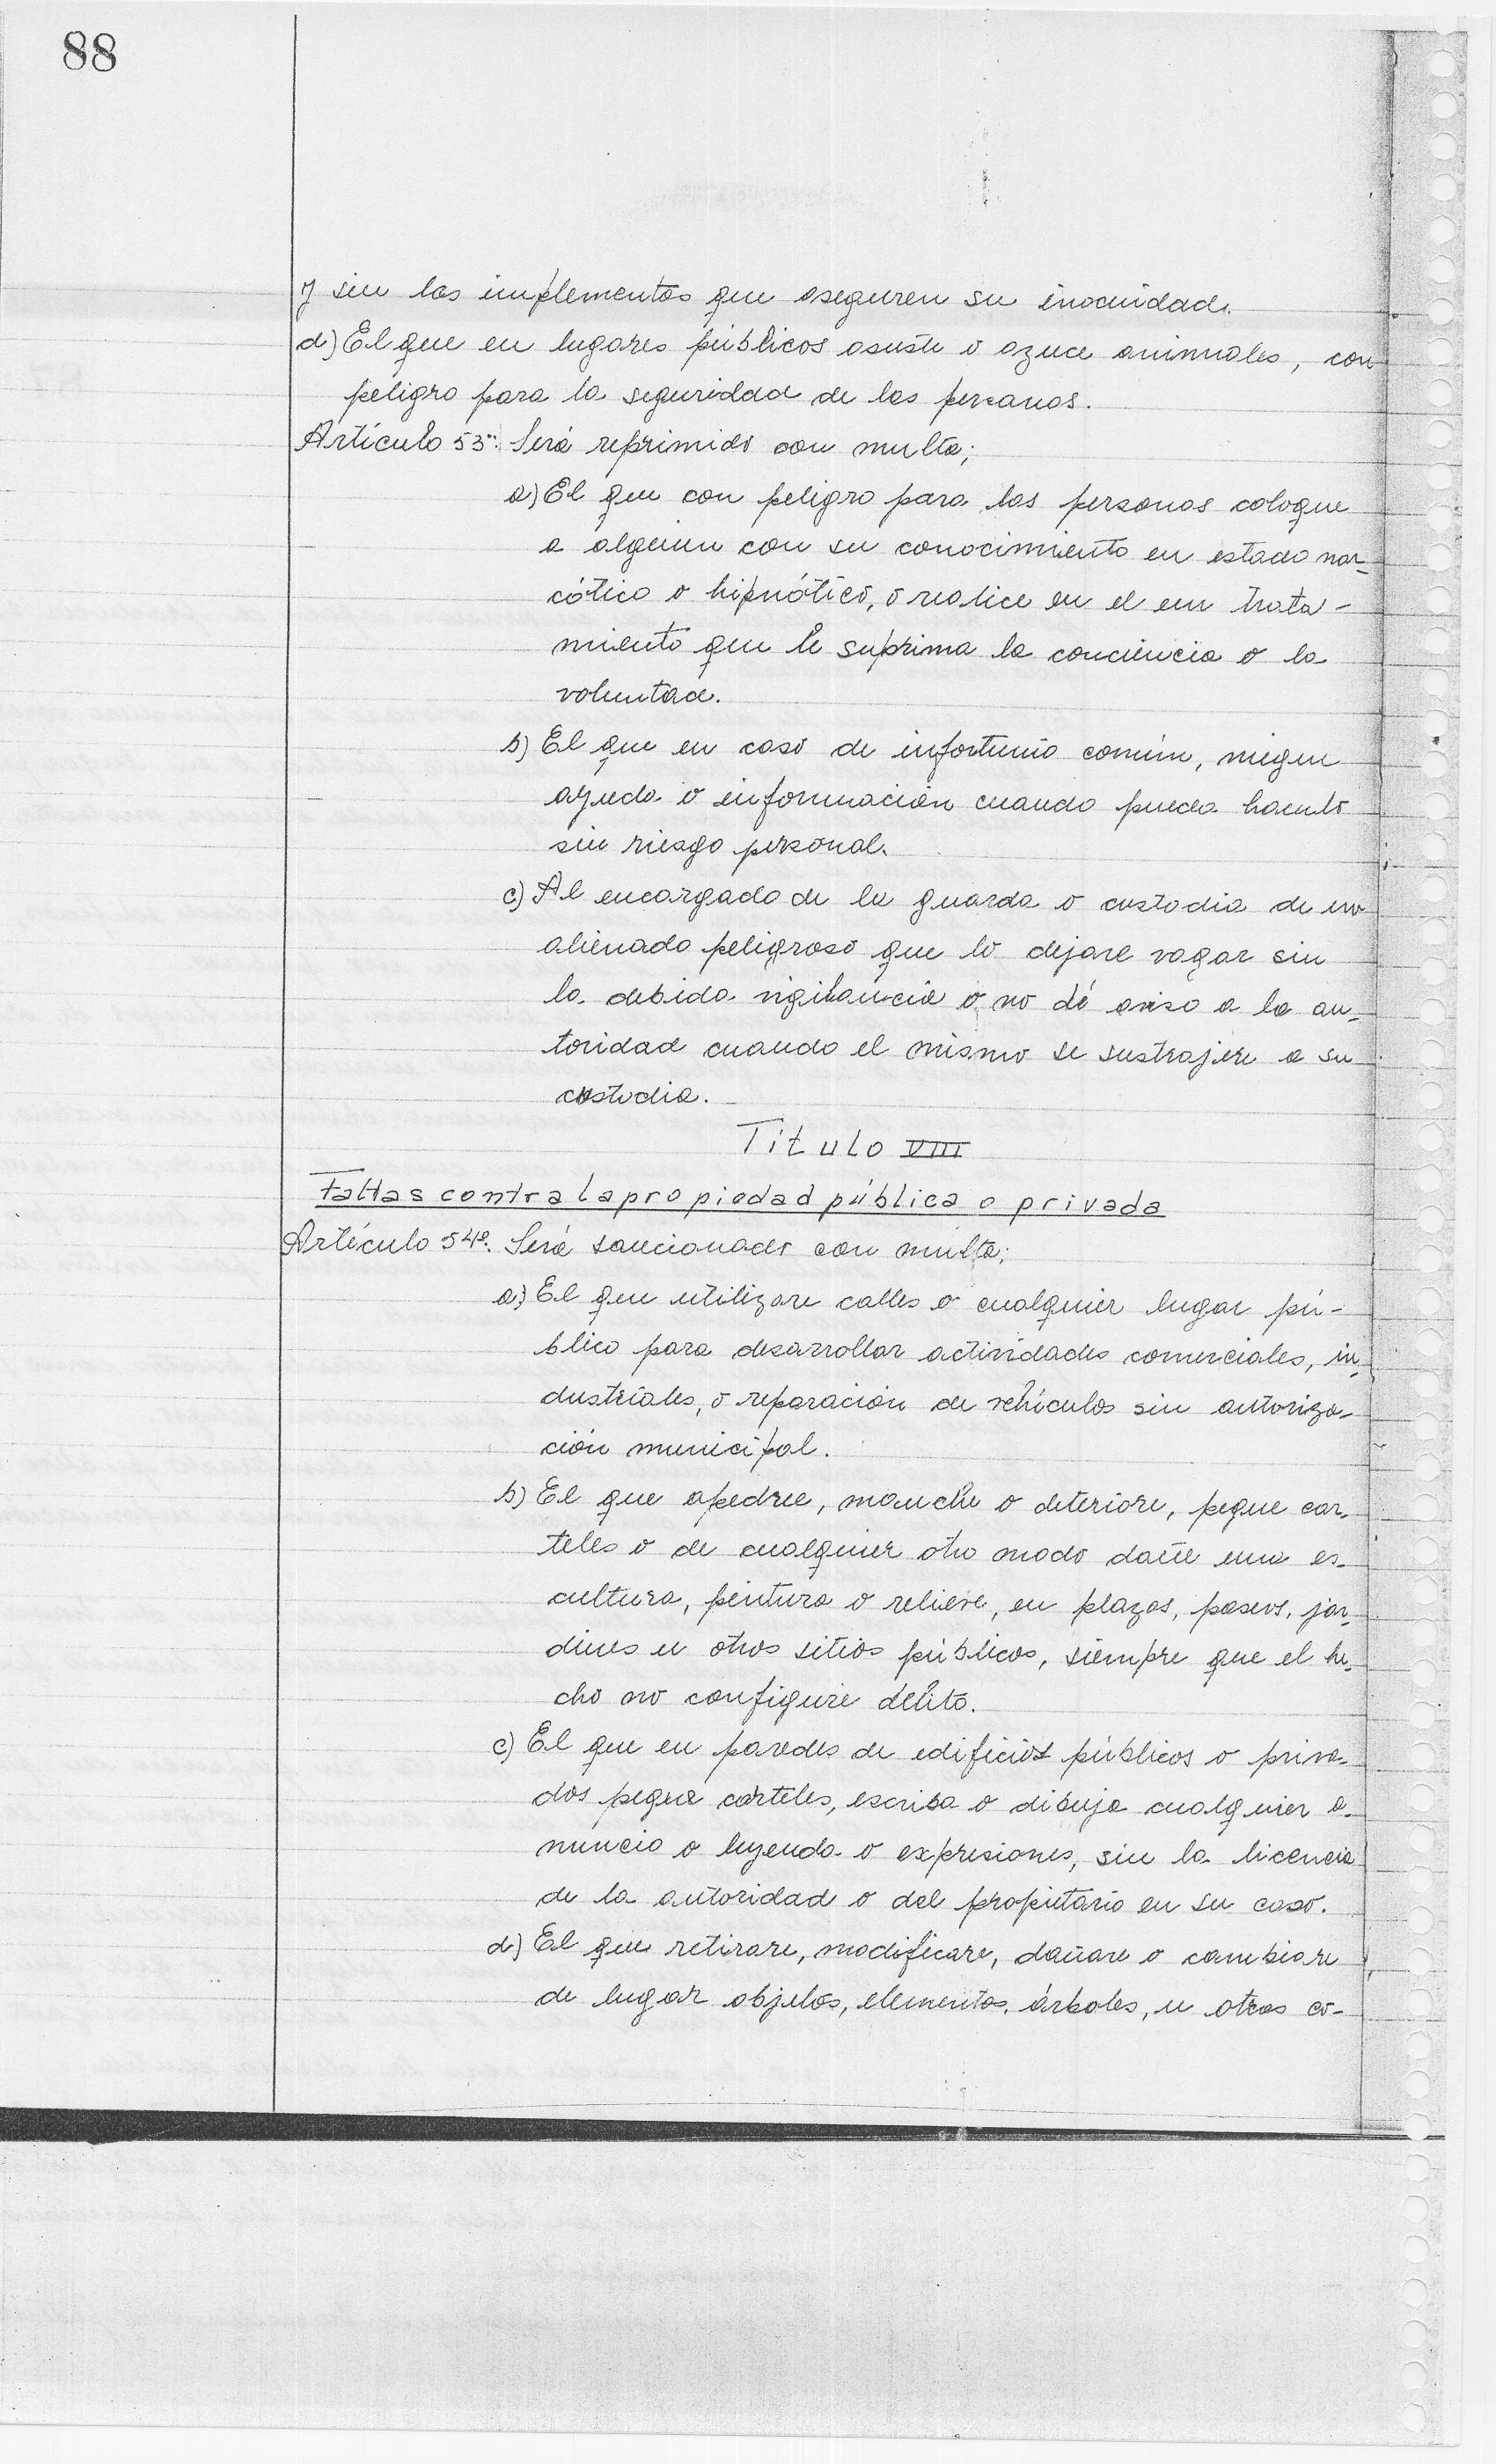 88
y sin los implementos que aseguren su inocuidad.
d) El que en lugares públicos asuste o azuce animales, con
peligro para la seguridad de las personas.
Artículo 53º: Será reprimido con multa;
a) El que con peligro para las personas coloque
a alguien con su conocimiento en estado nar-
cótico o hipnótico, o realice en el un trata-
miento que le suprima la conciencia o la
voluntad.
b) El que en caso de infortunio común, niegue
ayuda o información cuando pueda hacerlo
sin riesgo personal.
c) Al encargado de la guarda o custodia de un
alienado peligroso que lo dejare vagar sin
la debida vigilancia o no dé aviso a la au-
toridad cuando el mismo se sustrajere a su
custodia.
Titulo VIII
Faltas contra la propiedad pública o privada
Artículo 54º: Será sancionado con multa:
a) El que utilizare calles o cualquier lugar pú-
blico para desarrollar actividades comerciales, in-
dustriales, o reparación de vehículos sin autoriza-
ción municipal.
b) El que apedree, manche o deteriore, pegue car-
teles o de cualquier otro modo dañe una es-
cultura, pintura o relieve, en plazas, paseos, jar-
dines u otros sitios públicos, siempre que el he-
cho no configure delito.
c) El que en paredes de edificios públicos o priva-
dos pegue carteles, escriba o dibuje cualquier a-
nuncio o leyenda o expresiones, sin la licencia
de la autoridad o del propietario en su caso.
d) El que retirare, modificare, dañare o cambiare
de lugar objetos, elementos, árboles, u otras co-